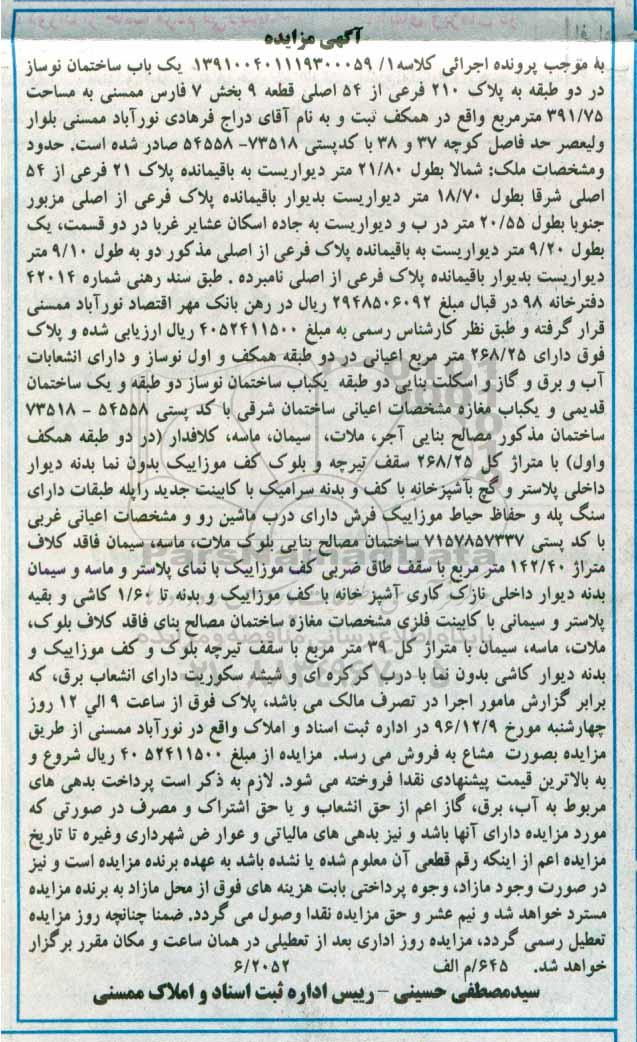 آگهی مزایده
به موجب پرونده اجرائی کلاسه۱/ ۱۳۹۱۰۰۴۰۱۱۱۹۳۰۰۰۵۹ یک باب ساختمان نوساز
در دو طبقه به پلاک ۲۱۰ فرعی از ۵۴ اصلی قطعه ۹ بخش ۷ فارس ممسنی به مساحت
۳۹۱/۷۵ مترمربع واقع در همکف ثبت و به نام آقای دراج فرهادی نورآباد ممسنی بلوار
ولیعصر حد فاصل کوچه ۳۷ و ۳۸ با کدپستی ۷۳۵۱۸- ۵۴۵۵۸ صادر شده است. حدود
ومشخصات ملک: شمالا بطول ۲۱/۸۰ متر دیواریست به باقیمانده پلاک ۲۱ فرعی از ۵۴
اصلی شرقا بطول ۱۸/۷۰ متر دیواریست بدیوار باقیمانده پلاک فرعی از اصلی مزبور
جنوبا بطول ۲۰/۵۵ متر در ب و دیواریست به جاده اسکان عشایر غربا در دو قسمت، یک
بطول ۹/۲۰ متر دیواریست به باقیمانده پلاک فرعی از اصلی مذکور دو به طول ۹/۱۰ متر
دیواریست بدیوار باقیمانده پلاک فرعی از اصلی نامبرده . طبق سند رهنی شماره ۴۲۰۱۴
دفترخانه ۹۸ در قبال مبلغ ۲۹۴۸۵۰۶۰۹۲ ریال در رهن بانک مهر اقتصاد نورآباد ممسنی
قرار گرفته و طبق نظر کارشناس رسمی به مبلغ ۴۰۵۲۴۱۱۵۰۰ ریال ارزیابی شده و پلاک
فوق دارای ۲۶۸/۲۵ متر مربع اعیانی در دو طبقه همکف و اول نوساز و دارای انشعابات
آب و برق و گاز و اسکلت بنایی دو طبقه یکباب ساختمان نوساز دو طبقه و یک ساختمان
قدیمی و یکباب مغازه مشخصات اعیانی ساختمان شرقی با کد پستی ۵۴۵۵۸ - ۷۳۵۱۸
ساختمان مذکور مصالح بنایی آجر، ملات، سیمان، ماسه، کلافدار (در دو طبقه همکف
واول) با متراژ کل ۲۶۸/۲۵ سقف تیرچه و بلوک کف موزاییک بدون نما بدنه دیوار
داخلی پلاستر و گچ باشپزخانه با کف و بدنه سرامیک با کابینت جدید راپله طبقات دارای
سنگ پله و حفاظ حیاط موزاییک فرش دارای درب ماشین رو و مشخصات اعیانی غربی
با کد پستی ۷۱۵۷۸۵۷۳۳۷ ساختمان مصالح بنایی بلوک ملات، ماسه، سیمان فاقد کلاف
متراژ ۱۴۲/۴۰ متر مربع با سقف طاق ضربی کف موزاییک با نمای پلاستر و ماسه و سیمان
بدنه دیوار داخلی نازک کاری آشپز خانه با کف موزاییک و بدنه تا ۱/۶۰ کاشی و بقیه
پلاستر و سیمانی با کابینت فلزی مشخصات مغازه ساختمان مصالح بنای فاقد کلاف بلوک،
ملات، ماسه، سیمان با متراژ کل ۳۹ متر مربع با سقف تیرچه بلوک و کف موزاییک و
بدنه دیوار کاشی بدون نما با درب کرکره ای و شیشه سکوریت دارای انشعاب برق، که
برابر گزارش مامور اجرا در تصرف مالک می باشد، پلاک فوق از ساعت ۹ الي ۱۲ روز
چهارشنبه مورخ ۹۶/۱۲/۹ در اداره ثبت اسناد و املاک واقع در نورآباد ممسنی از طریق
مزایده بصورت مشاع به فروش می رسد. مزایده از مبلغ ۵۲۴۱۱۵۰۰ ۴۰ ریال شروع و
به بالاترین قیمت پیشنهادی نقدا فروخته می شود. لازم به ذکر است پرداخت بدهی های
مربوط به آب، برق، گاز اعم از حق انشعاب و یا حق اشتراک و مصرف در صورتی که
مورد مزایده دارای آنها باشد و نیز بدهی های مالیاتی و عوار ض شهرداری وغیره تا تاریخ
مزایده اعم از اینکه رقم قطعی آن معلوم شده یا نشده باشد به عهده برنده مزایده است و نیز
در صورت وجود مازاد، وجوه پرداختی بابت هزینه های فوق از محل مازاد به برنده مزایده
مسترد خواهد شد و نیم عشر و حق مزایده نقدا وصول می گردد. ضمنا چنانچه روز مزایده
تعطیل رسمی گردد، مزایده روز اداری بعد از تعطیلی در همان ساعت و مکان مقرر برگزار
خواهد شد. ۶۴۵/م الف ۶/۲۰۵۲
سیدمصطفی حسینی – رییس اداره ثبت اسناد و املاک ممسنی